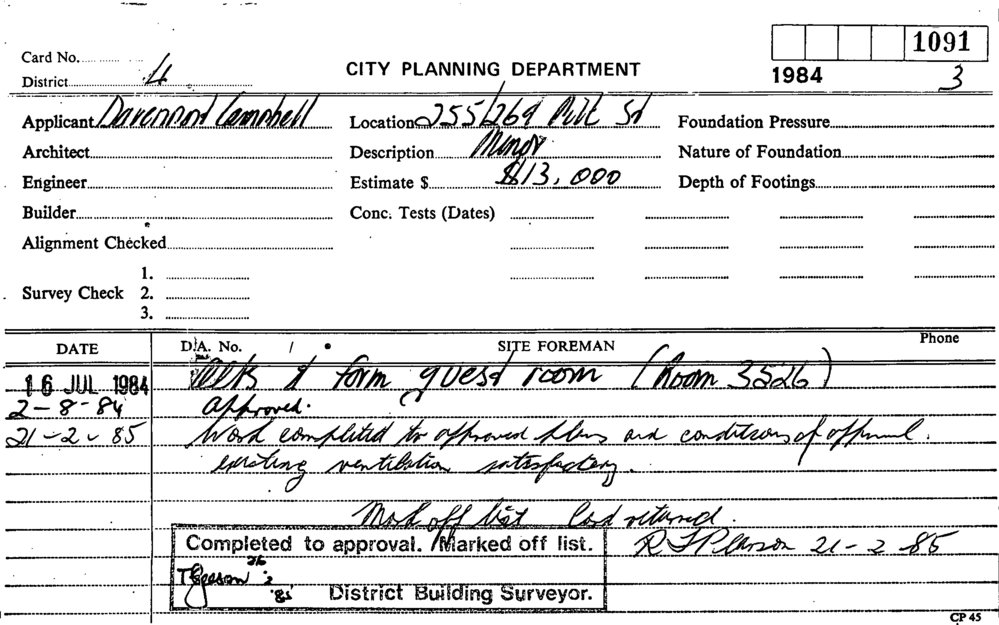 1091
Card No.
District 4
CITY PLANNING DEPARTMENT
1984 3
Applicant Davenport Campbell Location 255/269 Pitt St Foundation Pressure
Architect Description Minor Nature of Foundation
Engineer Estimate $ $13,000 Depth of Footings
Builder Conc. Tests (Dates)
Alignment Checked
1.
Survey Check 2.
3.
DATE D.A. No. / SITE FOREMAN Phone
16 JUL 1984 form guest room (Room 3526)
2-8-84 Approved.
21-2-85 Work completed to approved plans and conditions of approval.
existing ventilation satisfactory.
Mark off list Card returned.
Completed to approval. Marked off list. 21-2-85
26
2
'85 District Building Surveyor.
CP 45